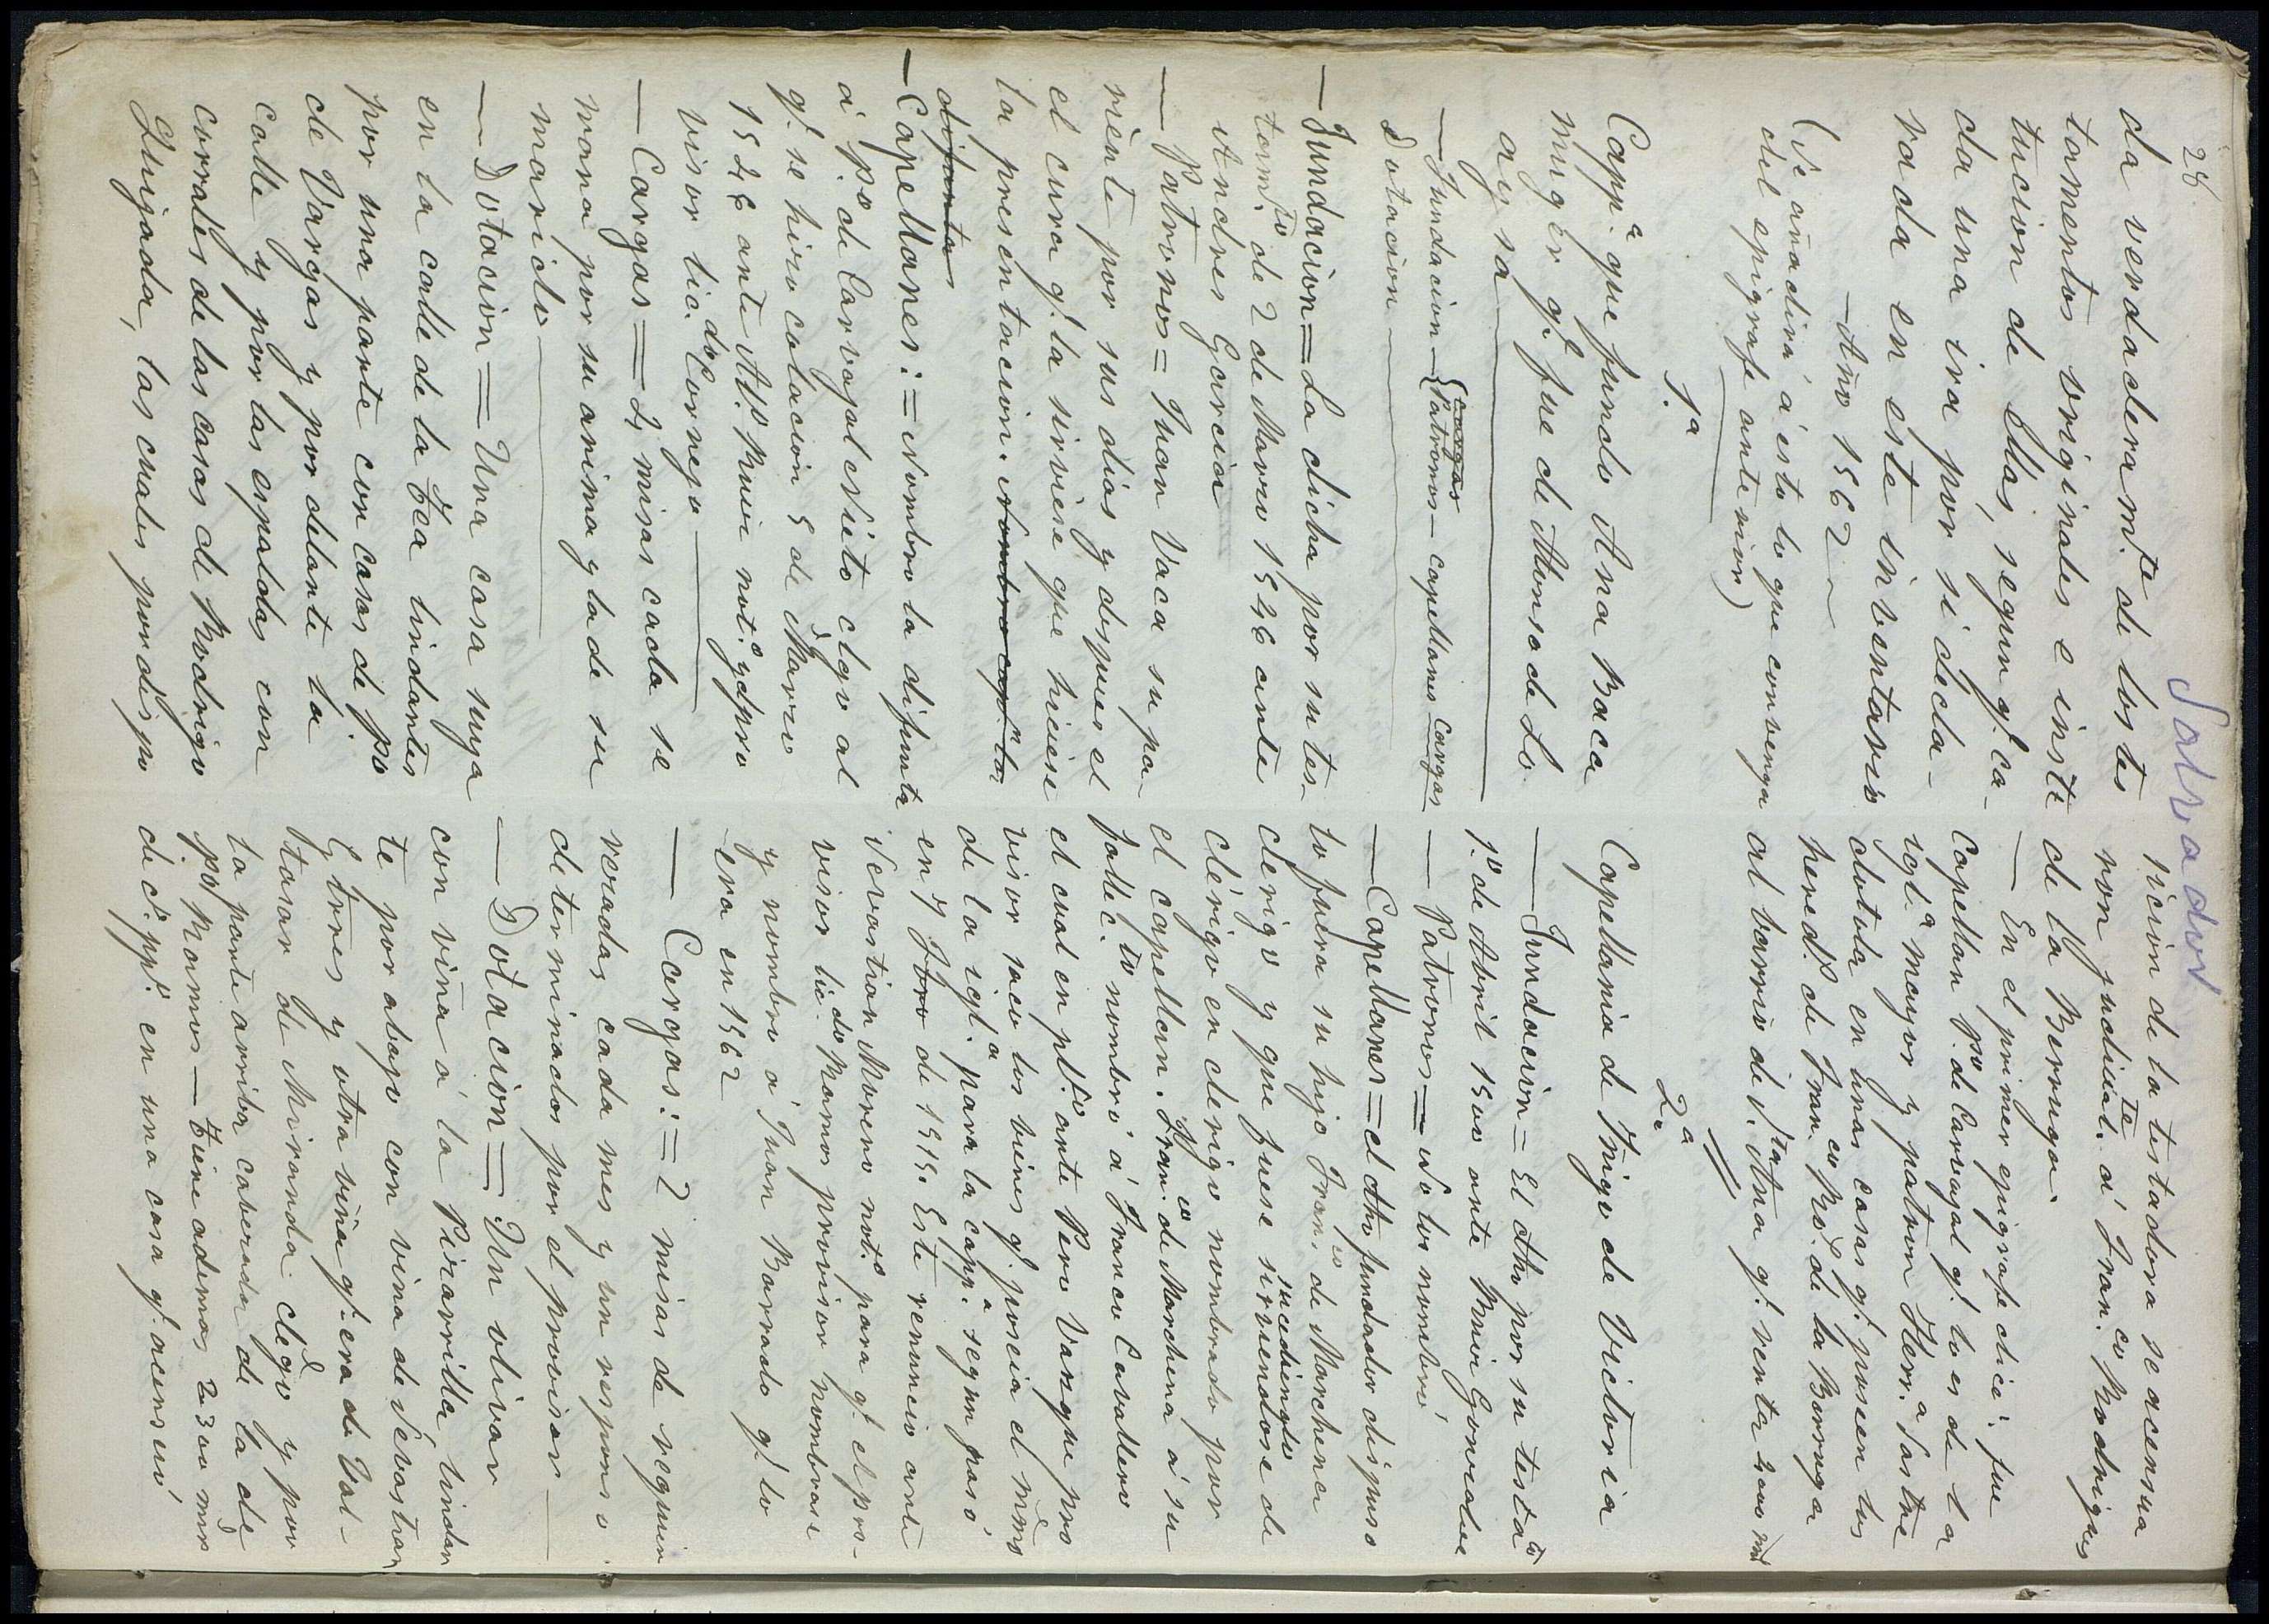 28.
Salvador
da verdaderam.te de los tes
tamentos originales e insti
tucion de ellas, segun q.e ca-
da una ira por si decla-
rada en este inventario
— Año 1562 —
(Se añadirá á esto lo que convenga
del epigrafe anterior)
1.a
Capp.a que fundo Ana Baca
muger q.e fue de Alonso de Lo
aysa
— Fundacion — {cargas Patronos — capellanes cargas
Dotacion
— Fundacion = La dicha por su tes-
tam.to de 2 de Marzo 1546 ante
Andres Garcia
— Patronos = Juan Vaca su pa-
riente por sus dias y despues el
el cura q.e la sirviese que hiciese
la presentacion. Nombro cap.n la
difunta
— Capellanes: = Nombro la difunta
á P.o de Carvajal Nieto clgo al
q.e se hizo colacion 5 de Marzo
1546 ante Al.o Ruiz not.o y dho pro
visor lic.do Cornejo
— Cargas = 2 misas cada se
mana por su anima y la de su
marido
— Dotacion = Una casa suya
en la calle de la Zea lindantes
por una parte con casas de P.o
de Vargas y por delante la
calle y por las espaldas con
corrales de las casas de Rodrigo
Quijada, las cuales por dispo
sicion de la testadora se acensua
ron judicial.te á Fran.co Rodrigues
de la Berruga.
— En el primer epigrafe dice: fue
Capellan P.o de Carvajal q.e lo es de la
igl.a mayor y patron Her.a Sastre
dotola en unas casas q.e poseen los
hered.s de Fran.co Ro.d de la Berruga
al barrio de S.ta Ana q.e renta 2000 mrs
2.a
Capellania de Trigo de Victoria
— Fundacion = El dho por su testa.to
1.o de Abril 1500 ante Ruiz Gonzalve
— Patronos = No los nombró
— Capellanes = el dho fundador dispuso
lo fuera su hijo Fran.co de Marchena
clerigo y que fuese sirviendose sucediendo de
clérigo en clerigo nombrado por
el capellan. Fran.co de Marchena á su
fallec.to nombró á Franco Cavallero
el cual en pl.to ante Pero Vasque pro
visor saco los vienes q.e poseia el mmo
de la igl.a para la capp.a segun pasó
en 7 de 1515. Este renuncio ante
Sevastian Moreno not.o para q.e el pro-
visor lic.do Ramos provisor nombrase
y nombro á Juan Barrado q.e lo
era en 1562
— Cargas: = 2 misas de requien
rezadas, cada mes y un responso
determinados por el provisor
— Dotacion = Un olivar
con viña á la Pizarrilla, lindan
te por abajo con vina de Sevastian
Gtrres y otra viña q.e era de Val-
tasar de Miranda clego y por
la parte arriba cabezadas de la de
P.o Ramos — Tiene ademas 2.300 mrs
de c.o pp.o en una casa q.e acensuó